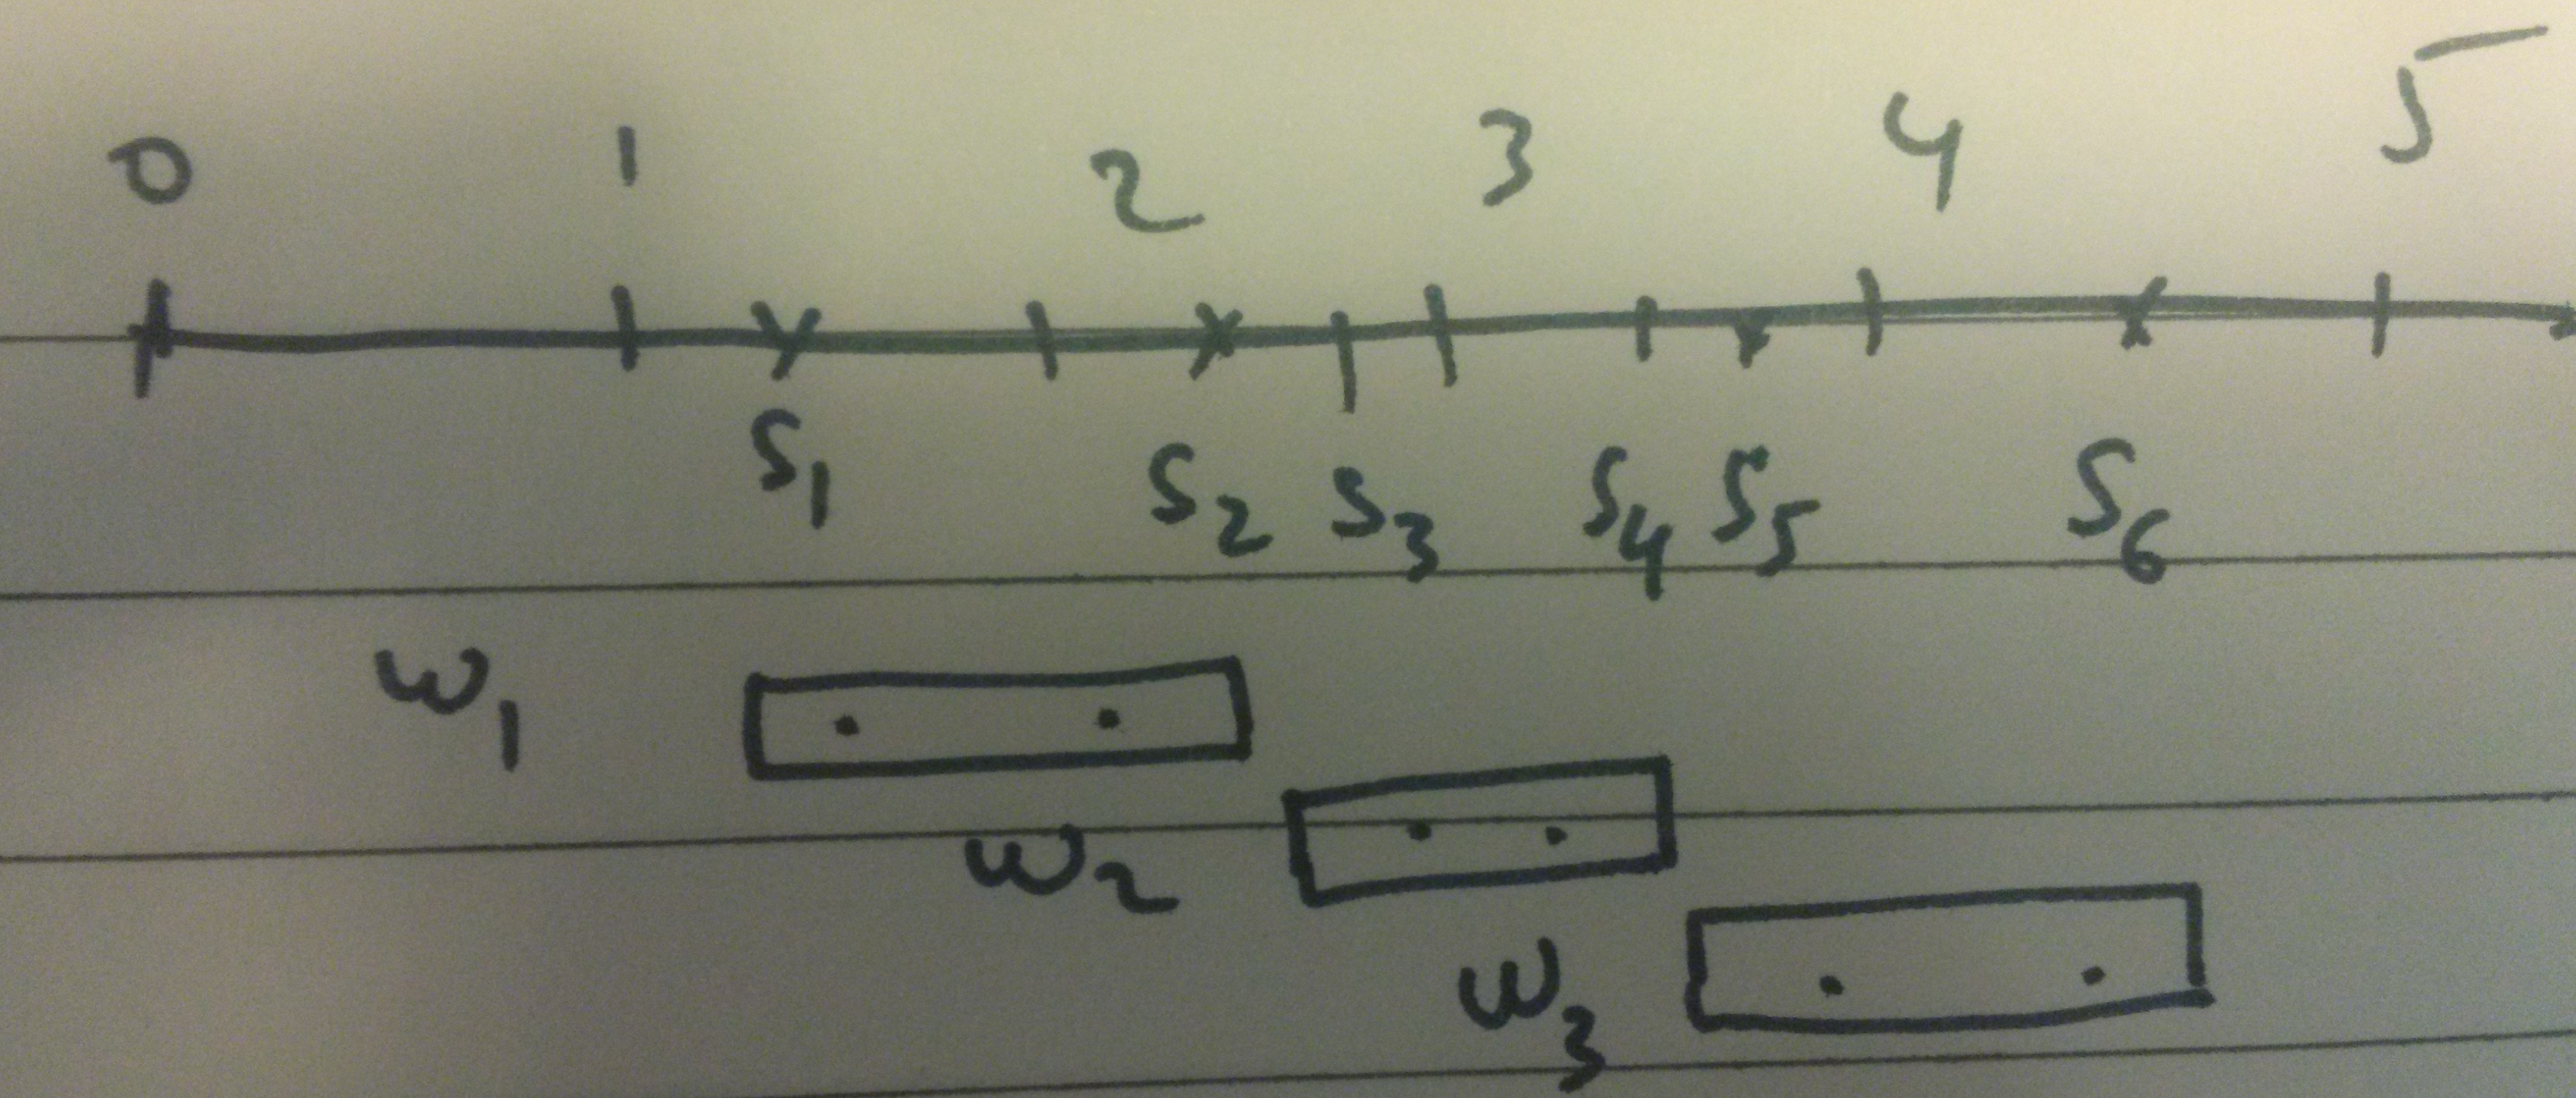 0 1 2 3 4 5
S1 S2 S3 S4 S5 S6
W1
W2
W3